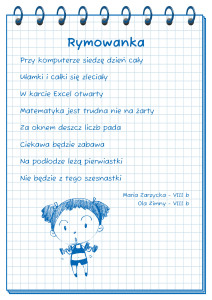 Rymowanka
Przy komputerze siedzę dzień cały
Ułamki i całki się zleciały
W karcie Excel otwarty
Matematyka jest trudna nie na żarty
Za oknem deszcz liczb pada
Ciekawa będzie zabawa
Na podłodze leżą pierwiastki
Nie będzie z tego szesnastki
Maria Zarzycka - VIII b
Ola Zimny - VIII b